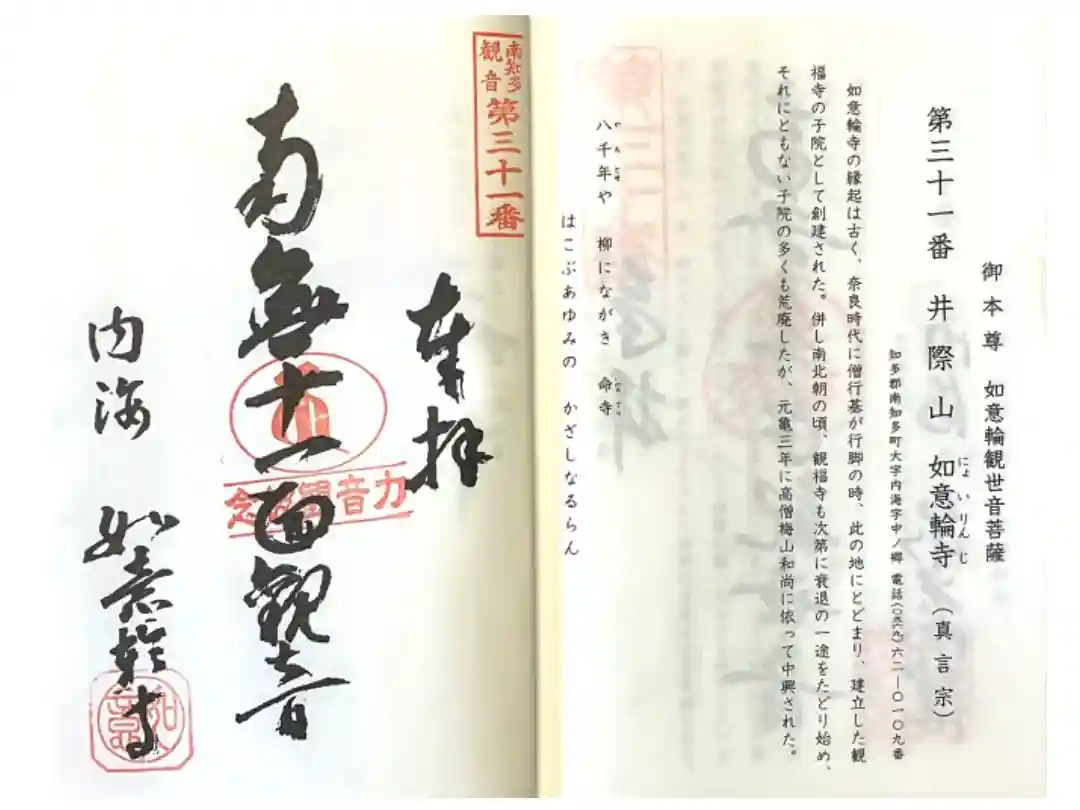 御本尊 如意輪観世音菩薩
第三十一番 井際山 如意輪寺 (真言宗)
にょいりんじ
知多郡南知多町大字内海字中ノ郷 電話(〇五六九)六二―〇一〇九番
如意輪寺の縁起は古く、奈良時代に僧行基が行脚の時、此の地にとどまり、建立した観
福寺の子院として創建された。併し南北朝の頃、観福寺も次第に衰退の一途をたどり始め、
それにともない子院の多くも荒廃したが、元亀三年に高僧梅山和尚に依って中興された。
八千年や 柳にながき 命寺
はこぶあゆみの かざしなるらん
南知多
観音
第三十一番
奉拝
南無十一面観音
内海 如意輪寺